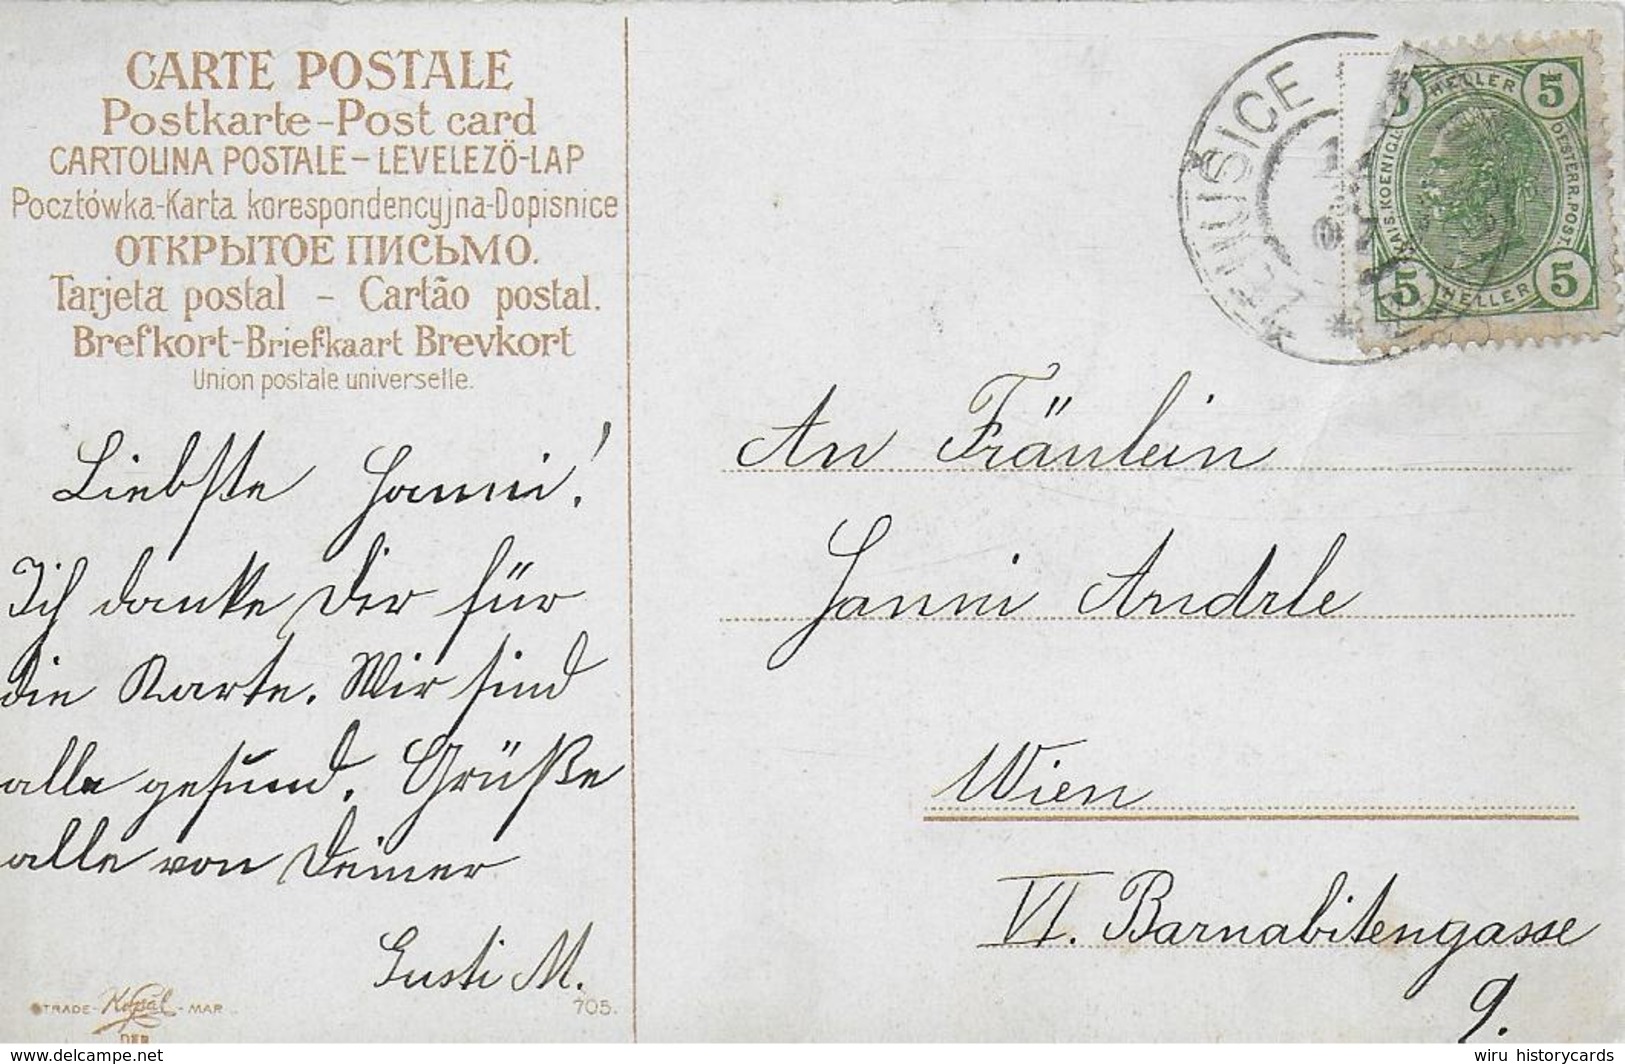 CARTE POSTALE
Postkarte-Post card
CARTOLINA POSTALE-LEVELEZÖ-LAP
Pocztówka-Karta korespondencyjna-Dopisnice
ОТКРЫТОЕ ПИСЬМО.
Tarjeta postal - Cartão postal.
Brefkort-Briefkaart Brevkort
Union postale universelle.
Liebste Hanni!
Ich danke Dir für
die Karte. Wir sind
alle gesund. Grüße
alle von Deiner
Gusti M.
TRADE- - MAR
705.
HELLER
5 5
KAIS. KOENIGL. OESTERR. POST.
5 5
HELLER
An Fräulein
Hanni Andrle
Wien
VI. Barnabitengasse
9.
wiru historycards
www.delcampe.net